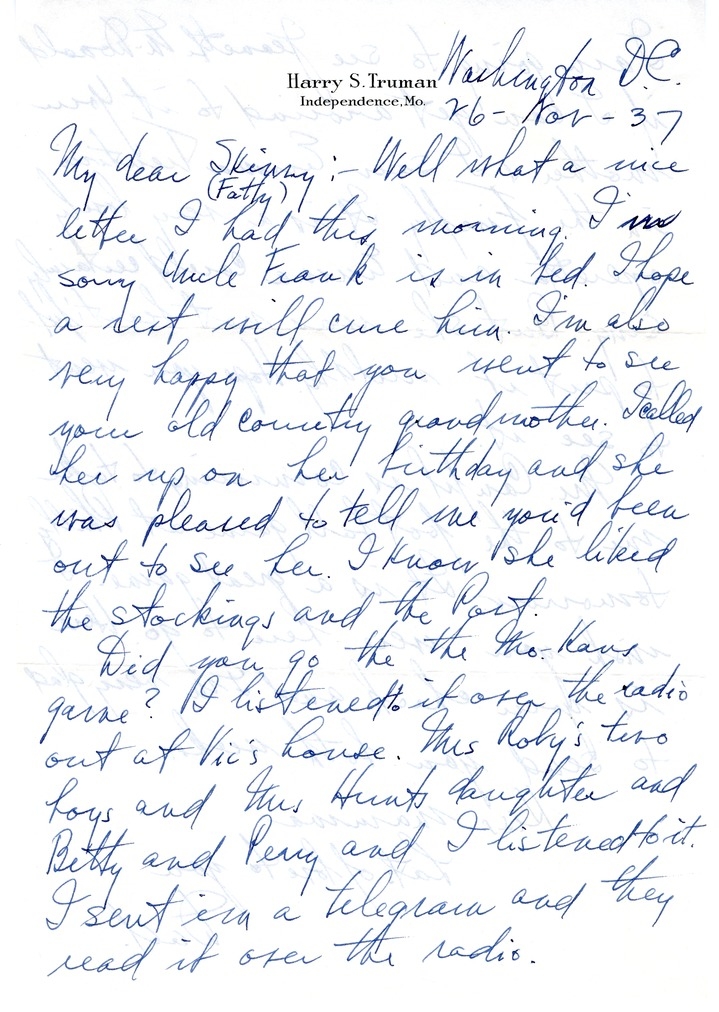 Harry S. Truman
Independence, Mo.
Washington D.C.
26 - Nov - 37
My dear Skinny :- Well what a nice
(Fatty)
letter I had this morning. I'm
sorry Uncle Frank is in bed. I hope
a rest will cure him. I'm also
very happy that you went to see
your old country grandmother. I called
her up on her birthday and she
was pleased to tell me you'd been
out to see her. I know she liked
the stockings and the Post.
Did you go the the Mo-Kans
game? I listened to it over the radio
out at Vic's house. Mrs Roby's two
boys and Mrs Hunts daughter and
Betty and Perry and I listened to it.
I sent em a telegram and they
read it over the radio.